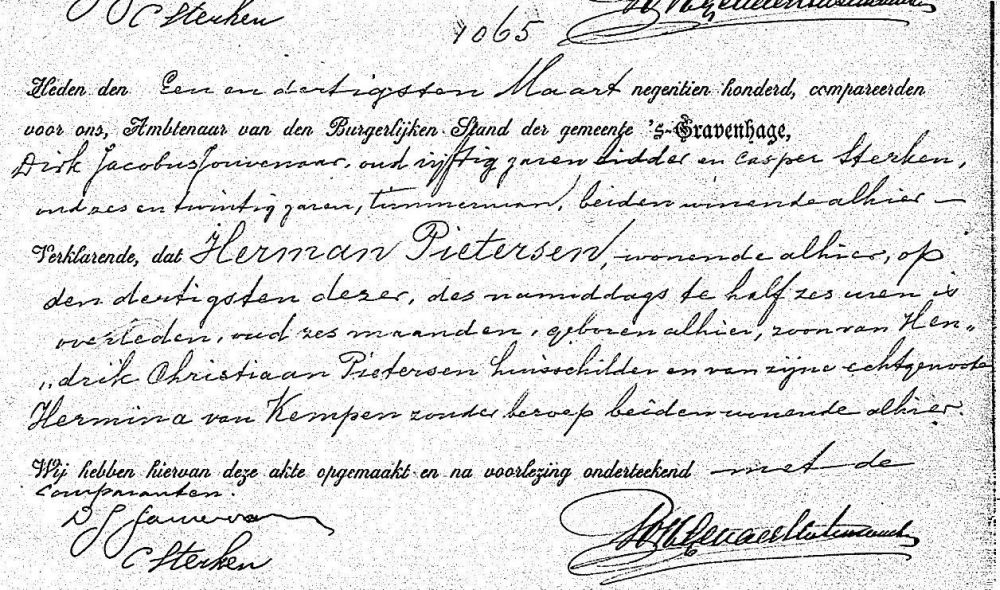 C Sterken
1065
Heden den Een en dertigsten Maart negentien honderd, compareerden
voor ons, Ambtenaar van den Burgerlijken Stand der gemeente 's-Gravenhage,
Dirk Jacobus Jouvenaar, oud vijftig jaren bidder en Casper Sterken,
oud zes en twintig jaren, timmerman, beiden wonende alhier —
Verklarende, dat Herman Pietersen, wonende alhier, op
den dertigsten dezer, des namiddags te half zes uren is
overleden, oud zes maanden, geboren alhier, zoon van Hen„
„drik Christiaan Pietersen huisschilder en van zijne echtgenoote
Hermina van Kempen zonder beroep beiden wonende alhier.
Wij hebben hiervan deze akte opgemaakt en na voorlezing onderteekend met de
comparanten.
C Sterken